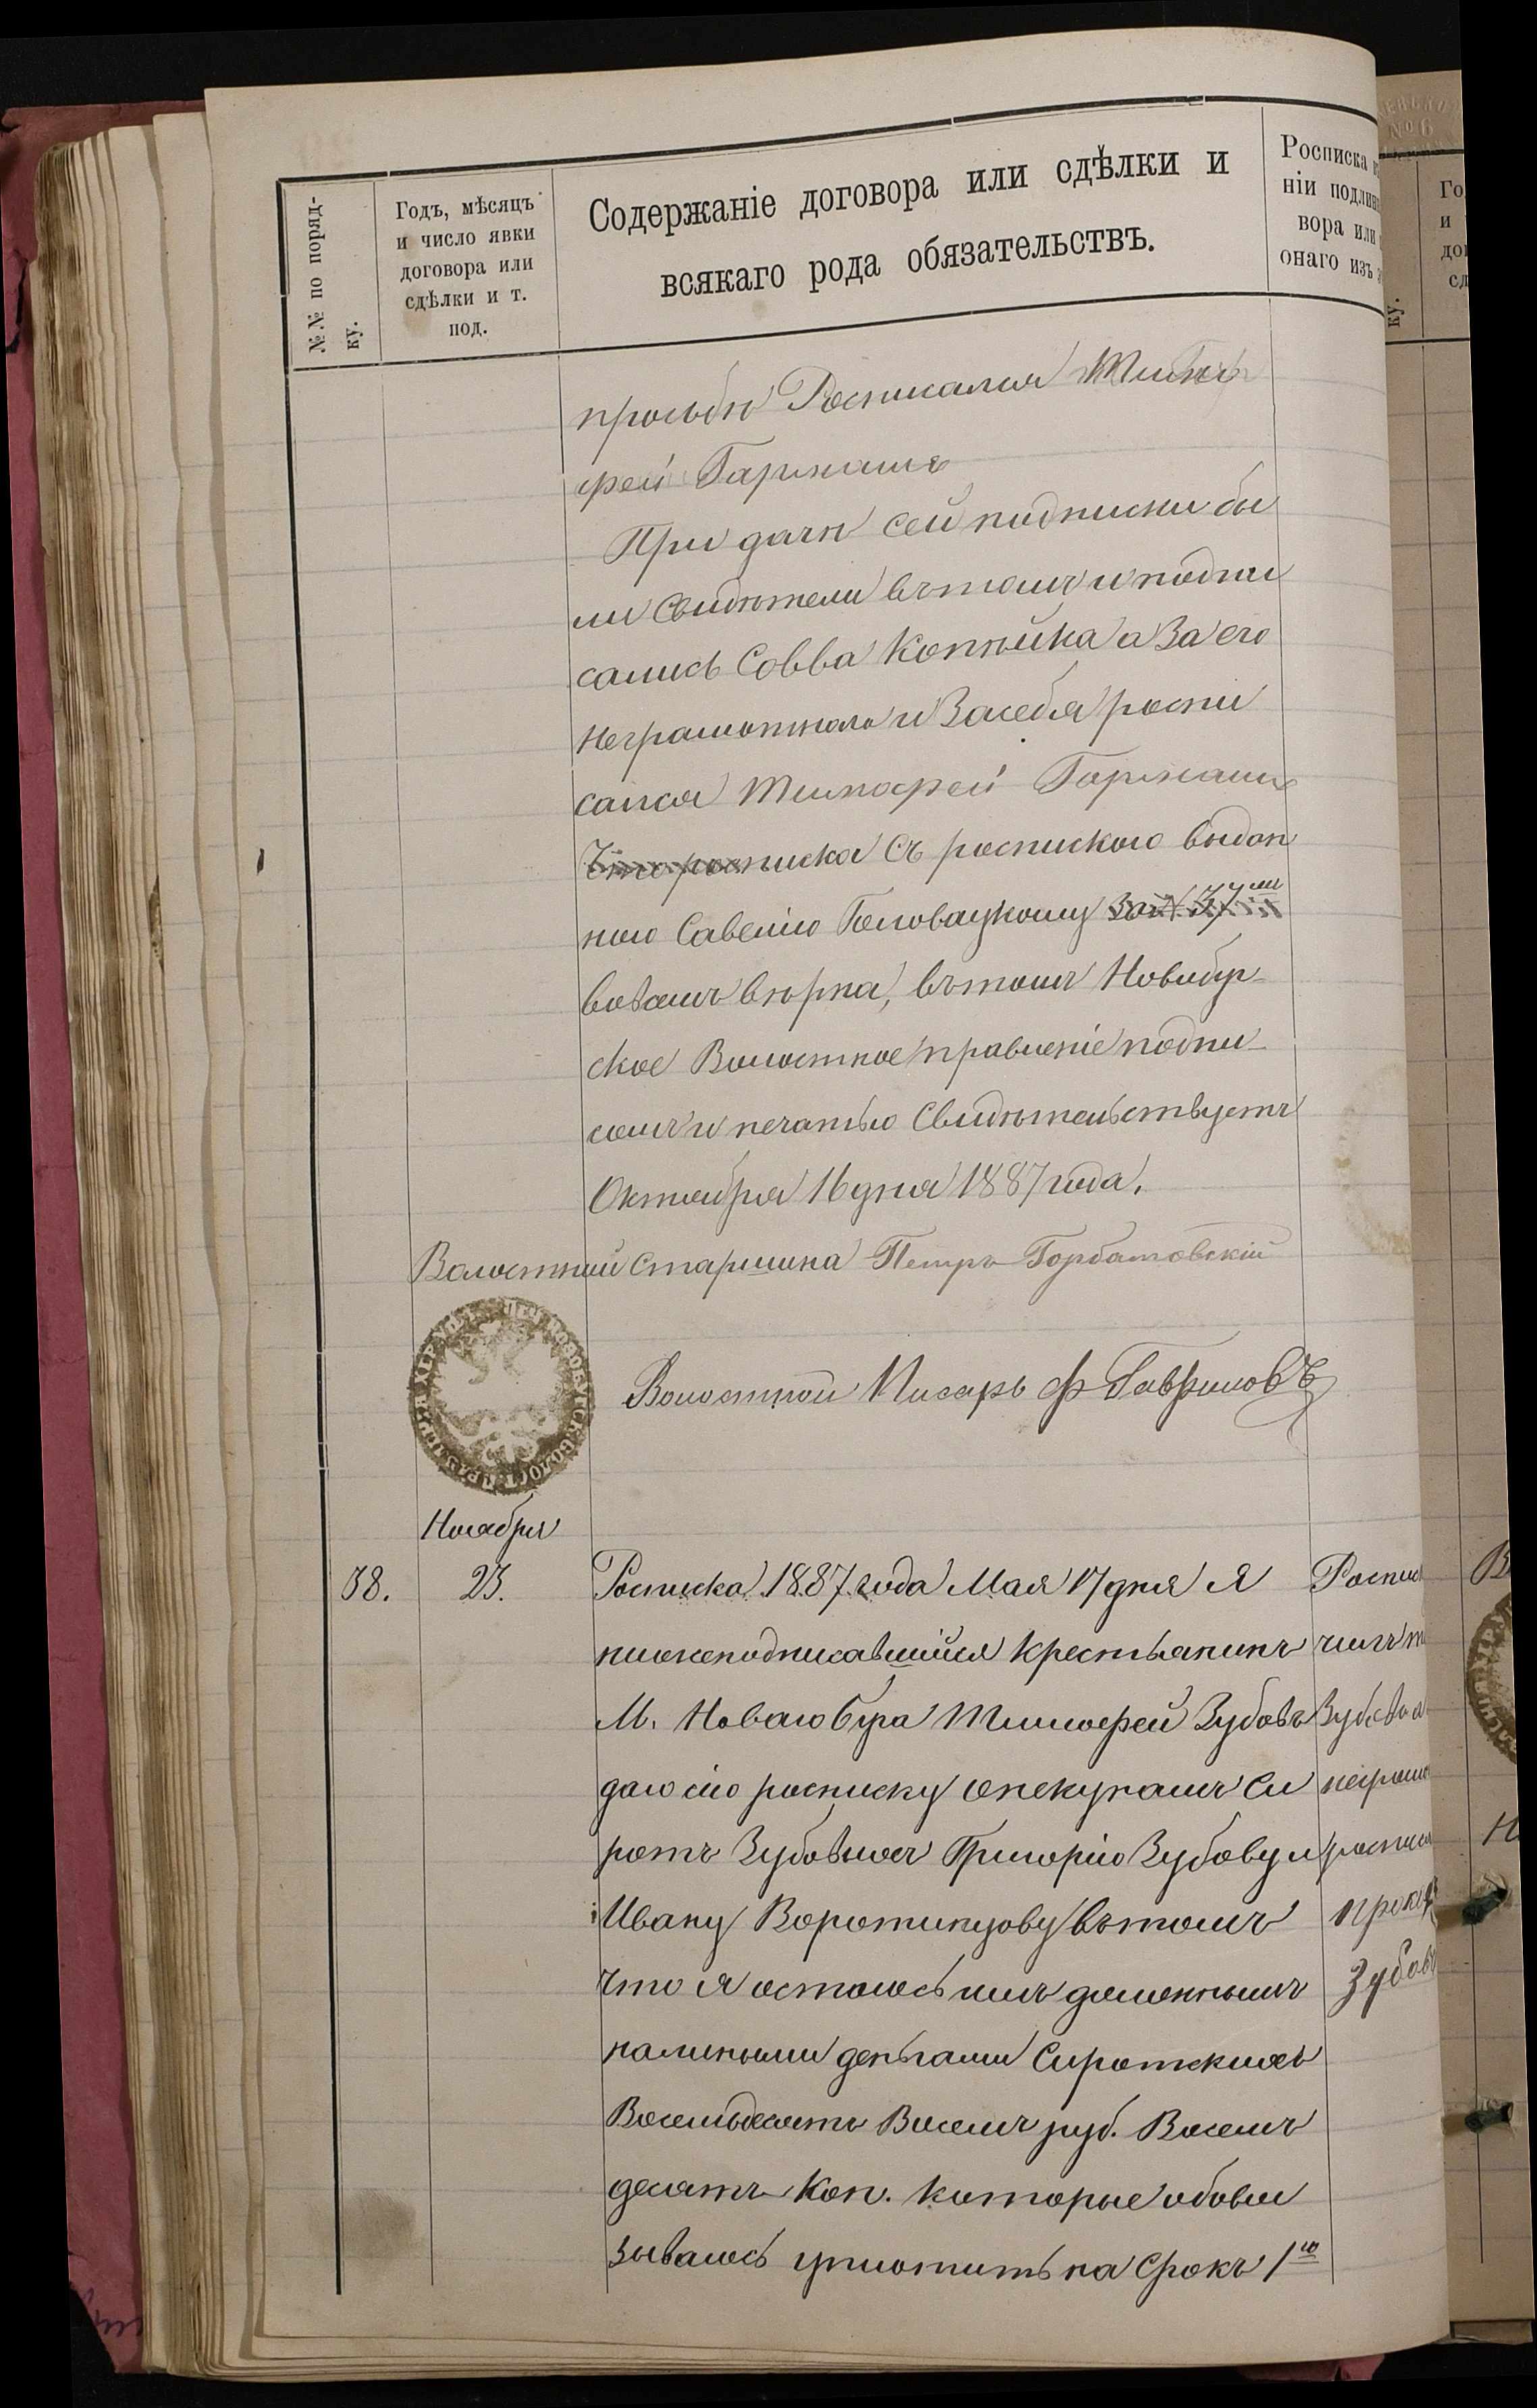 №№ по поряд-
ку.
Годъ, мѣсяцъ
и число явки
договора или
сдѣлки и т.
под.
Содержаніе договора или сдѣлки и
всякаго рода обязательствъ.
Росписка
ніи подлин
вора или
онаго изъ
просьбѣ Росписался Тимо
фей Гармашъ
При дачѣ сей подписки бы
ли свидѣтели въ томъ и подпи
сались Совва Копѣйка а За его
неграмотнаго и За себя роспи
сался Тимофей Гармашъ
Что росписка Съ роспискою выдан
ною Савелію Головацкому За № 37
водамъ вѣрна, въ томъ Новобуг-
ское Волостное правленіе подпи-
сомъ и печатью Свидѣтельствуетъ
Октября 16 дня 1887 года.
Волостной Старшина Петръ Горбатовскій
Волостной Писарь Ф Гавриловъ
Ноября
38.
23.
Росписка 1887 года Мая 17 дня Я
нижеподписавшійся Крестьянинъ
М. Новаго Буга Тимофей Зубовъ
даю сію росписку опекунамъ Си
ротъ Зубовыхъ Григорію Зубову и
Ивану Воротинцову въ томъ
что я остаюсь имъ долженъ
наличными деньгами Сиротскихъ
Восемьдесятъ Восемъ руб. Восемъ
десятъ Коп. которые обовя
зываюсь уплотить на Срокъ 1го
Роспис
чилъ
Зубовъ а
неграмо
росписа
Прок
Зубовъ
Го
и
до
сд
ку.
№ 6